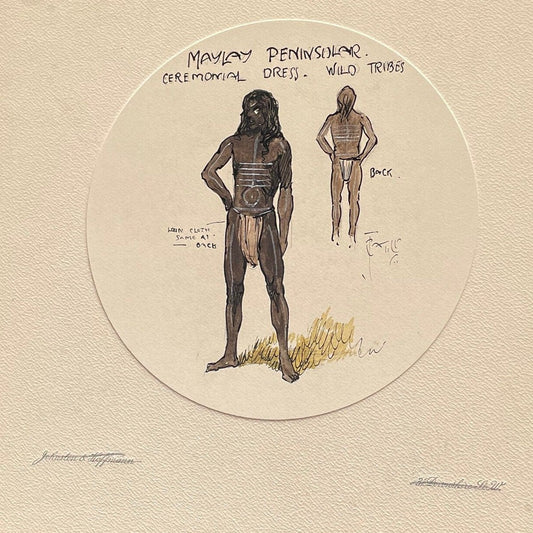 MAYLAY PENINSULAR.
CEREMONIAL DRESS. WILD TRIBES
BACK.
LOIN CLOTH
SAME AT
BACK
Johnston & Hoffmann